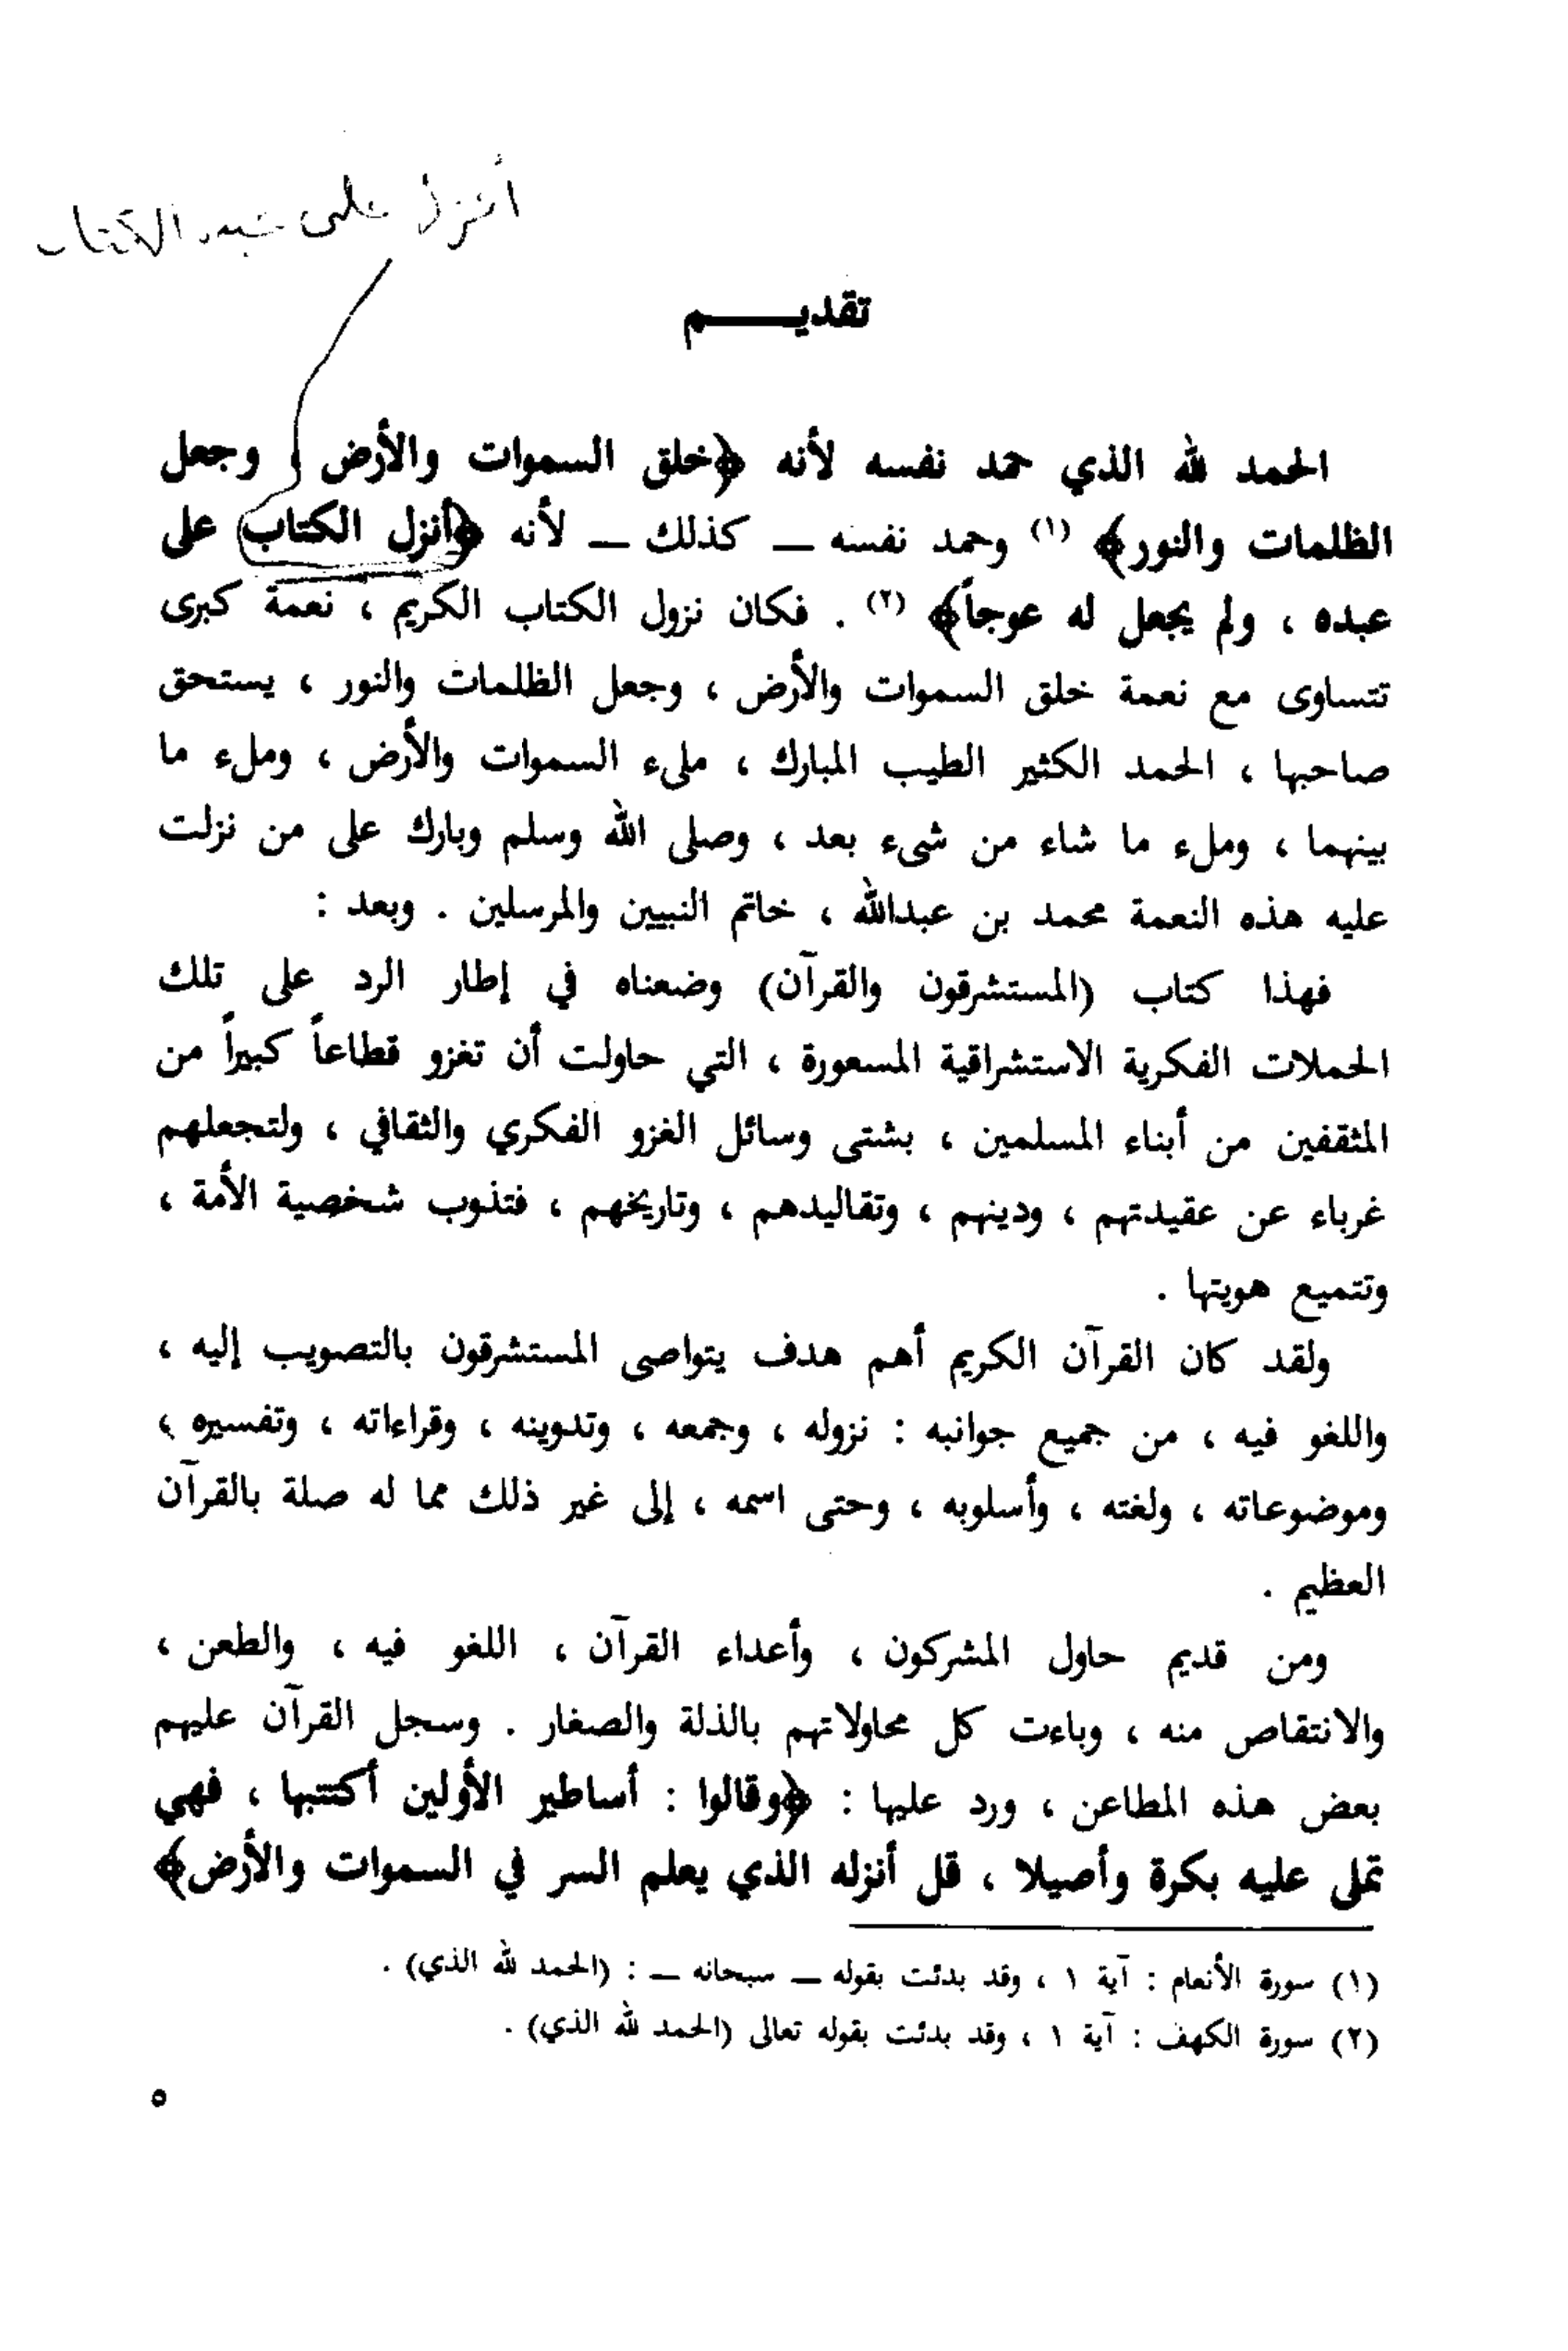 أنزل على عبده الكتاب
تقديم
الحمد لله الذي حمد نفسه لأنه ﴿خلق السموات والأرض وجعل
الظلمات والنور﴾ (١) وحمد نفسه — كذلك — لأنه ﴿أنزل الكتاب على
عبده ، ولم يجعل له عوجاً﴾ (٢) . فكان نزول الكتاب الكريم ، نعمة كبرى
تتساوى مع نعمة خلق السموات والأرض ، وجعل الظلمات والنور ، يستحق
صاحبها ، الحمد الكثير الطيب المبارك ، ملىء السموات والأرض ، وملء ما
بينهما ، وملء ما شاء من شىء بعد ، وصلى الله وسلم وبارك على من نزلت
عليه هذه النعمة محمد بن عبدالله ، خاتم النبيين والمرسلين . وبعد :
فهذا كتاب (المستشرقون والقرآن) وضعناه في إطار الرد على تلك
الحملات الفكرية الاستشراقية المسعورة ، التي حاولت أن تغزو قطاعاً كبيراً من
المثقفين من أبناء المسلمين ، بشتى وسائل الغزو الفكري والثقافي ، ولتجعلهم
غرباء عن عقيدتهم ، ودينهم ، وتقاليدهم ، وتاريخهم ، فتذوب شخصية الأمة ،
وتتميع هويتها .
ولقد كان القرآن الكريم أهم هدف يتواصى المستشرقون بالتصويب إليه ،
واللغو فيه ، من جميع جوانبه : نزوله ، وجمعه ، وتدوينه ، وقراءاته ، وتفسيره ،
وموضوعاته ، ولغته ، وأسلوبه ، وحتى اسمه ، إلى غير ذلك مما له صلة بالقرآن
العظيم .
ومن قديم حاول المشركون ، وأعداء القرآن ، اللغو فيه ، والطعن ،
والانتقاص منه ، وباءت كل محاولاتهم بالذلة والصغار . وسجل القرآن عليهم
بعض هذه المطاعن ، ورد عليها : ﴿وقالوا : أساطير الأولين أكتتبها ، فهي
تملى عليه بكرة وأصيلا ، قل أنزله الذي يعلم السر في السموات والأرض﴾
(١) سورة الأنعام : آية ١ ، وقد بدئت بقوله — سبحانه — : (الحمد لله الذي) .
(٢) سورة الكهف : آية ١ ، وقد بدئت بقوله تعالى (الحمد لله الذي) .
٥